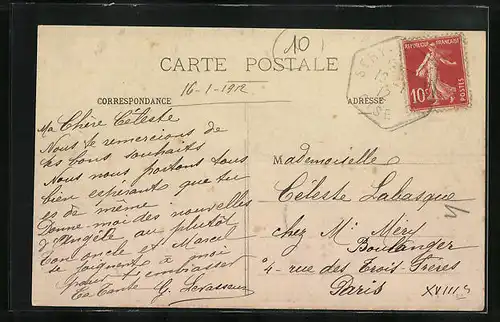 10
CARTE POSTALE
16-1-1912
CORRESPONDANCE
ADRESSE
RÉPUBLIQUE FRANÇAISE
10c
POSTES
Ma Chère Céleste
Nous te remercions de
tes bons souhaits
Nous nous portons tous
bien espérant que tu
es de même
Donne-moi des nouvelles
d'Angèle au plutôt
Ton oncle et Marcel
se joignent à moi
pour t'embrasser
Ta Tante G. Levasseur
Mademoiselle
Céleste Labasque
chez Mr Méry
Boulanger
4 - rue des Trois-Frères
Paris XVIIIe